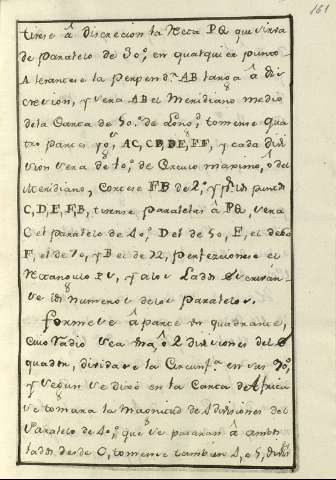 161
tirese â discrecion la Recta PQ que sirva
de paralelo de 30°, en qualquier punto
A levantese la Perpend.r AB larga â dis
crecion, y sera AB el Meridiano medio
de la Carta de 50.° de Long.d tomense qua
tro partes AC, CD, DE, EF, y cada divi
sion sera de 10.° de Circulo maximo, ô del
Meridiano, Cortese FB de 2.° y p.r los puntos
C, D, E, F, B, tirense Paralelas â PQ, sera
C el paralelo de 40.° D el de 50, E, el de 60
F, el de 70, y B el de 72, perfeccionese el
Rectangulo y a los Lados escrivan
se los numeros de los Paralelos.
formese â parte un quadrante,
cuio Radio sea una, ô 2 divisiones del
quadro, dividase la Circunf.a en sus 90.°
y segun se dixo en la Carta de Africa
se tomara la magnitud de 4 divisiones del
Paralelo de 40.° que se pasaran â ambos
lados desde C, tomense tambien 4, o 5, divis.s